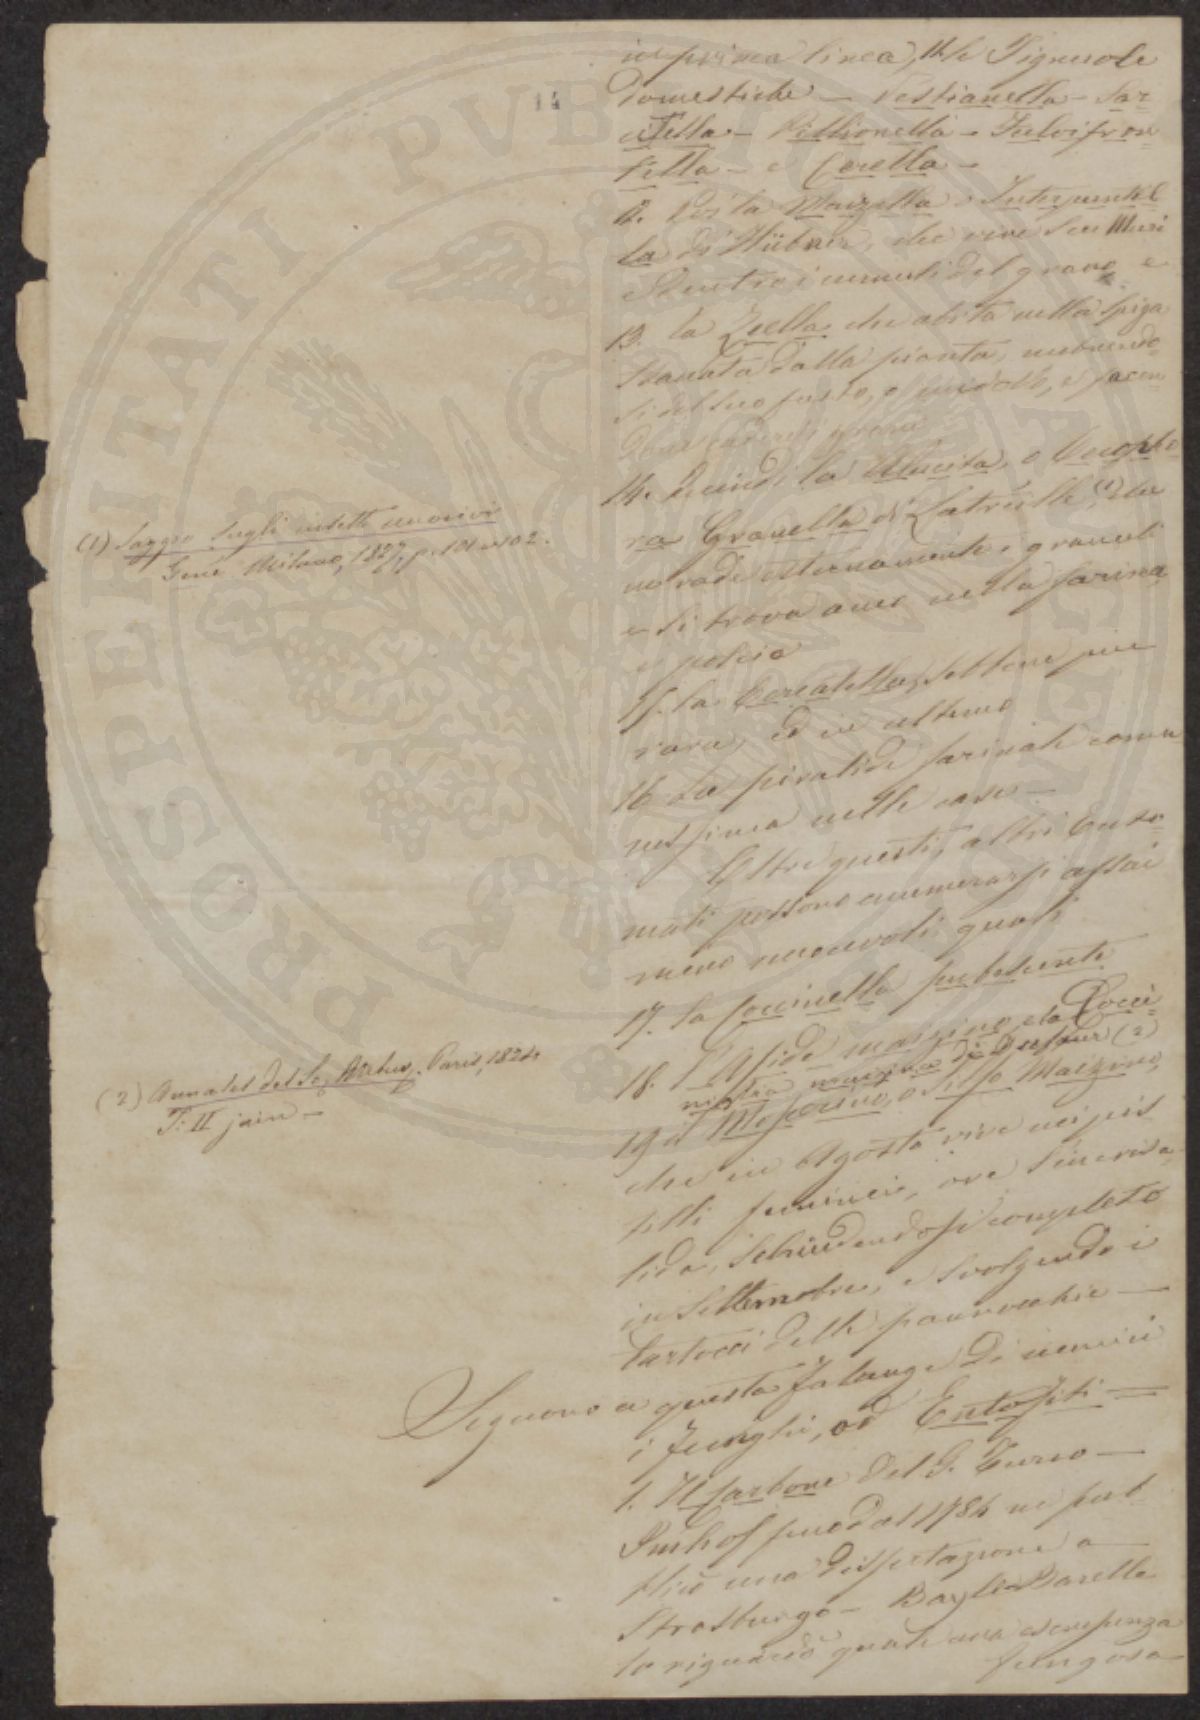 14
in prima linea, 11. le Tignuole
domestiche — Vestianella — Sar-
citella — Pellionella — Fulvifron-
tella — e Cerella —
12. Poi la Maizella o Interpunctel
la di Hübner, che vive sui Muri
e dentro i cumuli del grano e
13. la Zeella che abita nella spiga
staccata dalla pianta, nutrendo-
si del suo fusto, o midollo, e facen-
done cadere i grani
14. Quindi la Alucita, o Oecopho-
ra Granella di Latreille (1) che
ne rode esternamente i granelli
e si trova anco nella farina
e poleia
15. la sebbene piu
rara, ed in ultimo
16 La piralide farinale comu
nissima nelle case —
Oltre questi, altri Ento-
mati possono annumerarsi assai
meno nocevoli; quali
17. la Coccinella pubescente
18. l'Afide maizino, e la Cocci-
niglia maizina di Dufour (2)
19 il o Silfo Maizino,
che in Agosto vive nei pis
tilli feminei, ove s'incrisa-
lida, schiudendosi completo
in Settembre, e svolgendo i
cartocci delle pannocchie —
Seguono a questa falange di nemici
i funghi, od Entofiti —
1. Il Carbone del G. Turco —
Imhof fino dal 1784 ne pub-
blicò una dissertazione a
Strasburgo — Bayle Barelle
lo riguardò quale una escrescenza
fungosa —
(1) Saggio sugli insetti nocivi
Gené Milano, 1827, p. 101 e 102.
(2) Annales del Sc. Paris, 1824
T: II juin —